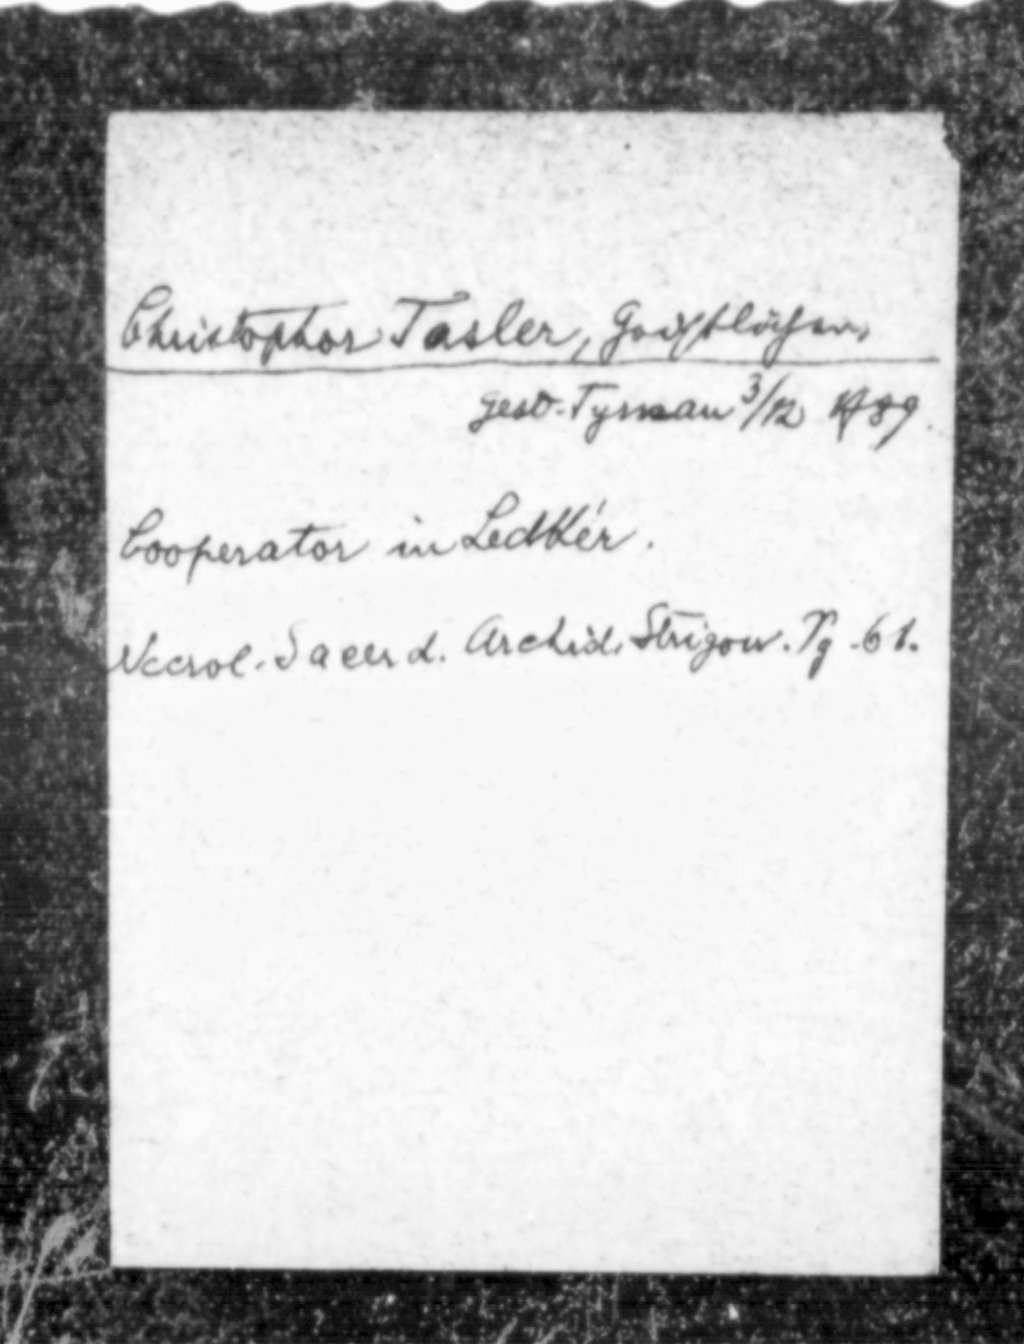 Christophor Tasler, Geistlicher,
gest. Tyrnau 3/12 1789.
Cooperator in Ledtkér.
Necrol. Sacerd. Archid. Strigon. Pg. 61.